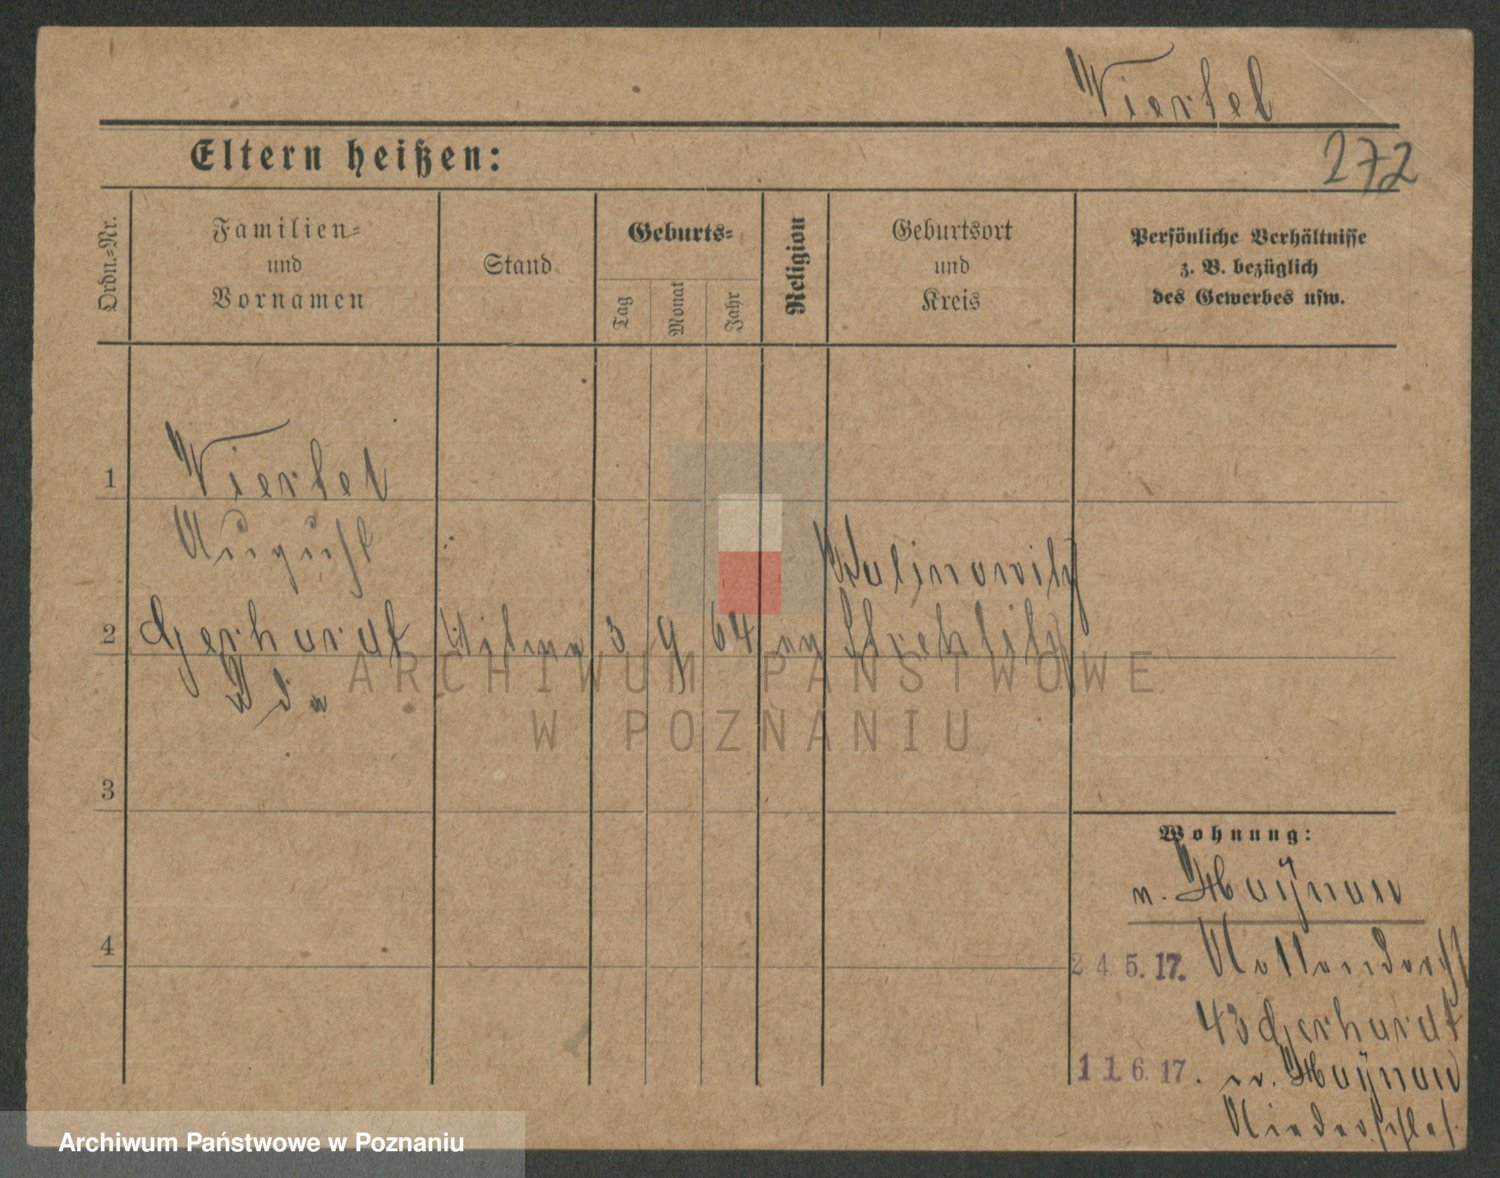 Viertel
Eltern heißen:
272
Ordn.-Nr.
Familien- und Vornamen
Stand
Geburts-
Tag
Monat
Jahr
Religion
Geburtsort und Kreis
Persönliche Verhältnisse z. B. bezüglich des Gewerbes usw.
1
Viertel
August
Kalinowitz
2
Gerhardt
Witwe
3
9
64
ev
Strehlitz
Ida
ARCHIWUM PAŃSTWOWE
W POZNANIU
3
Wohnung:
n. Haÿnau
4
24.5.17.
43 Gerhardt
11.6.17.
n. Haÿnau
Niederschles.
Archiwum Państwowe w Poznaniu